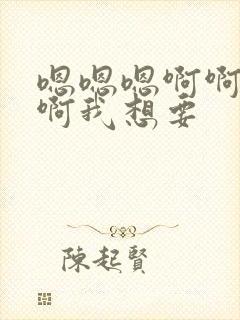 嗯嗯嗯啊啊
啊我想要
陳起賢